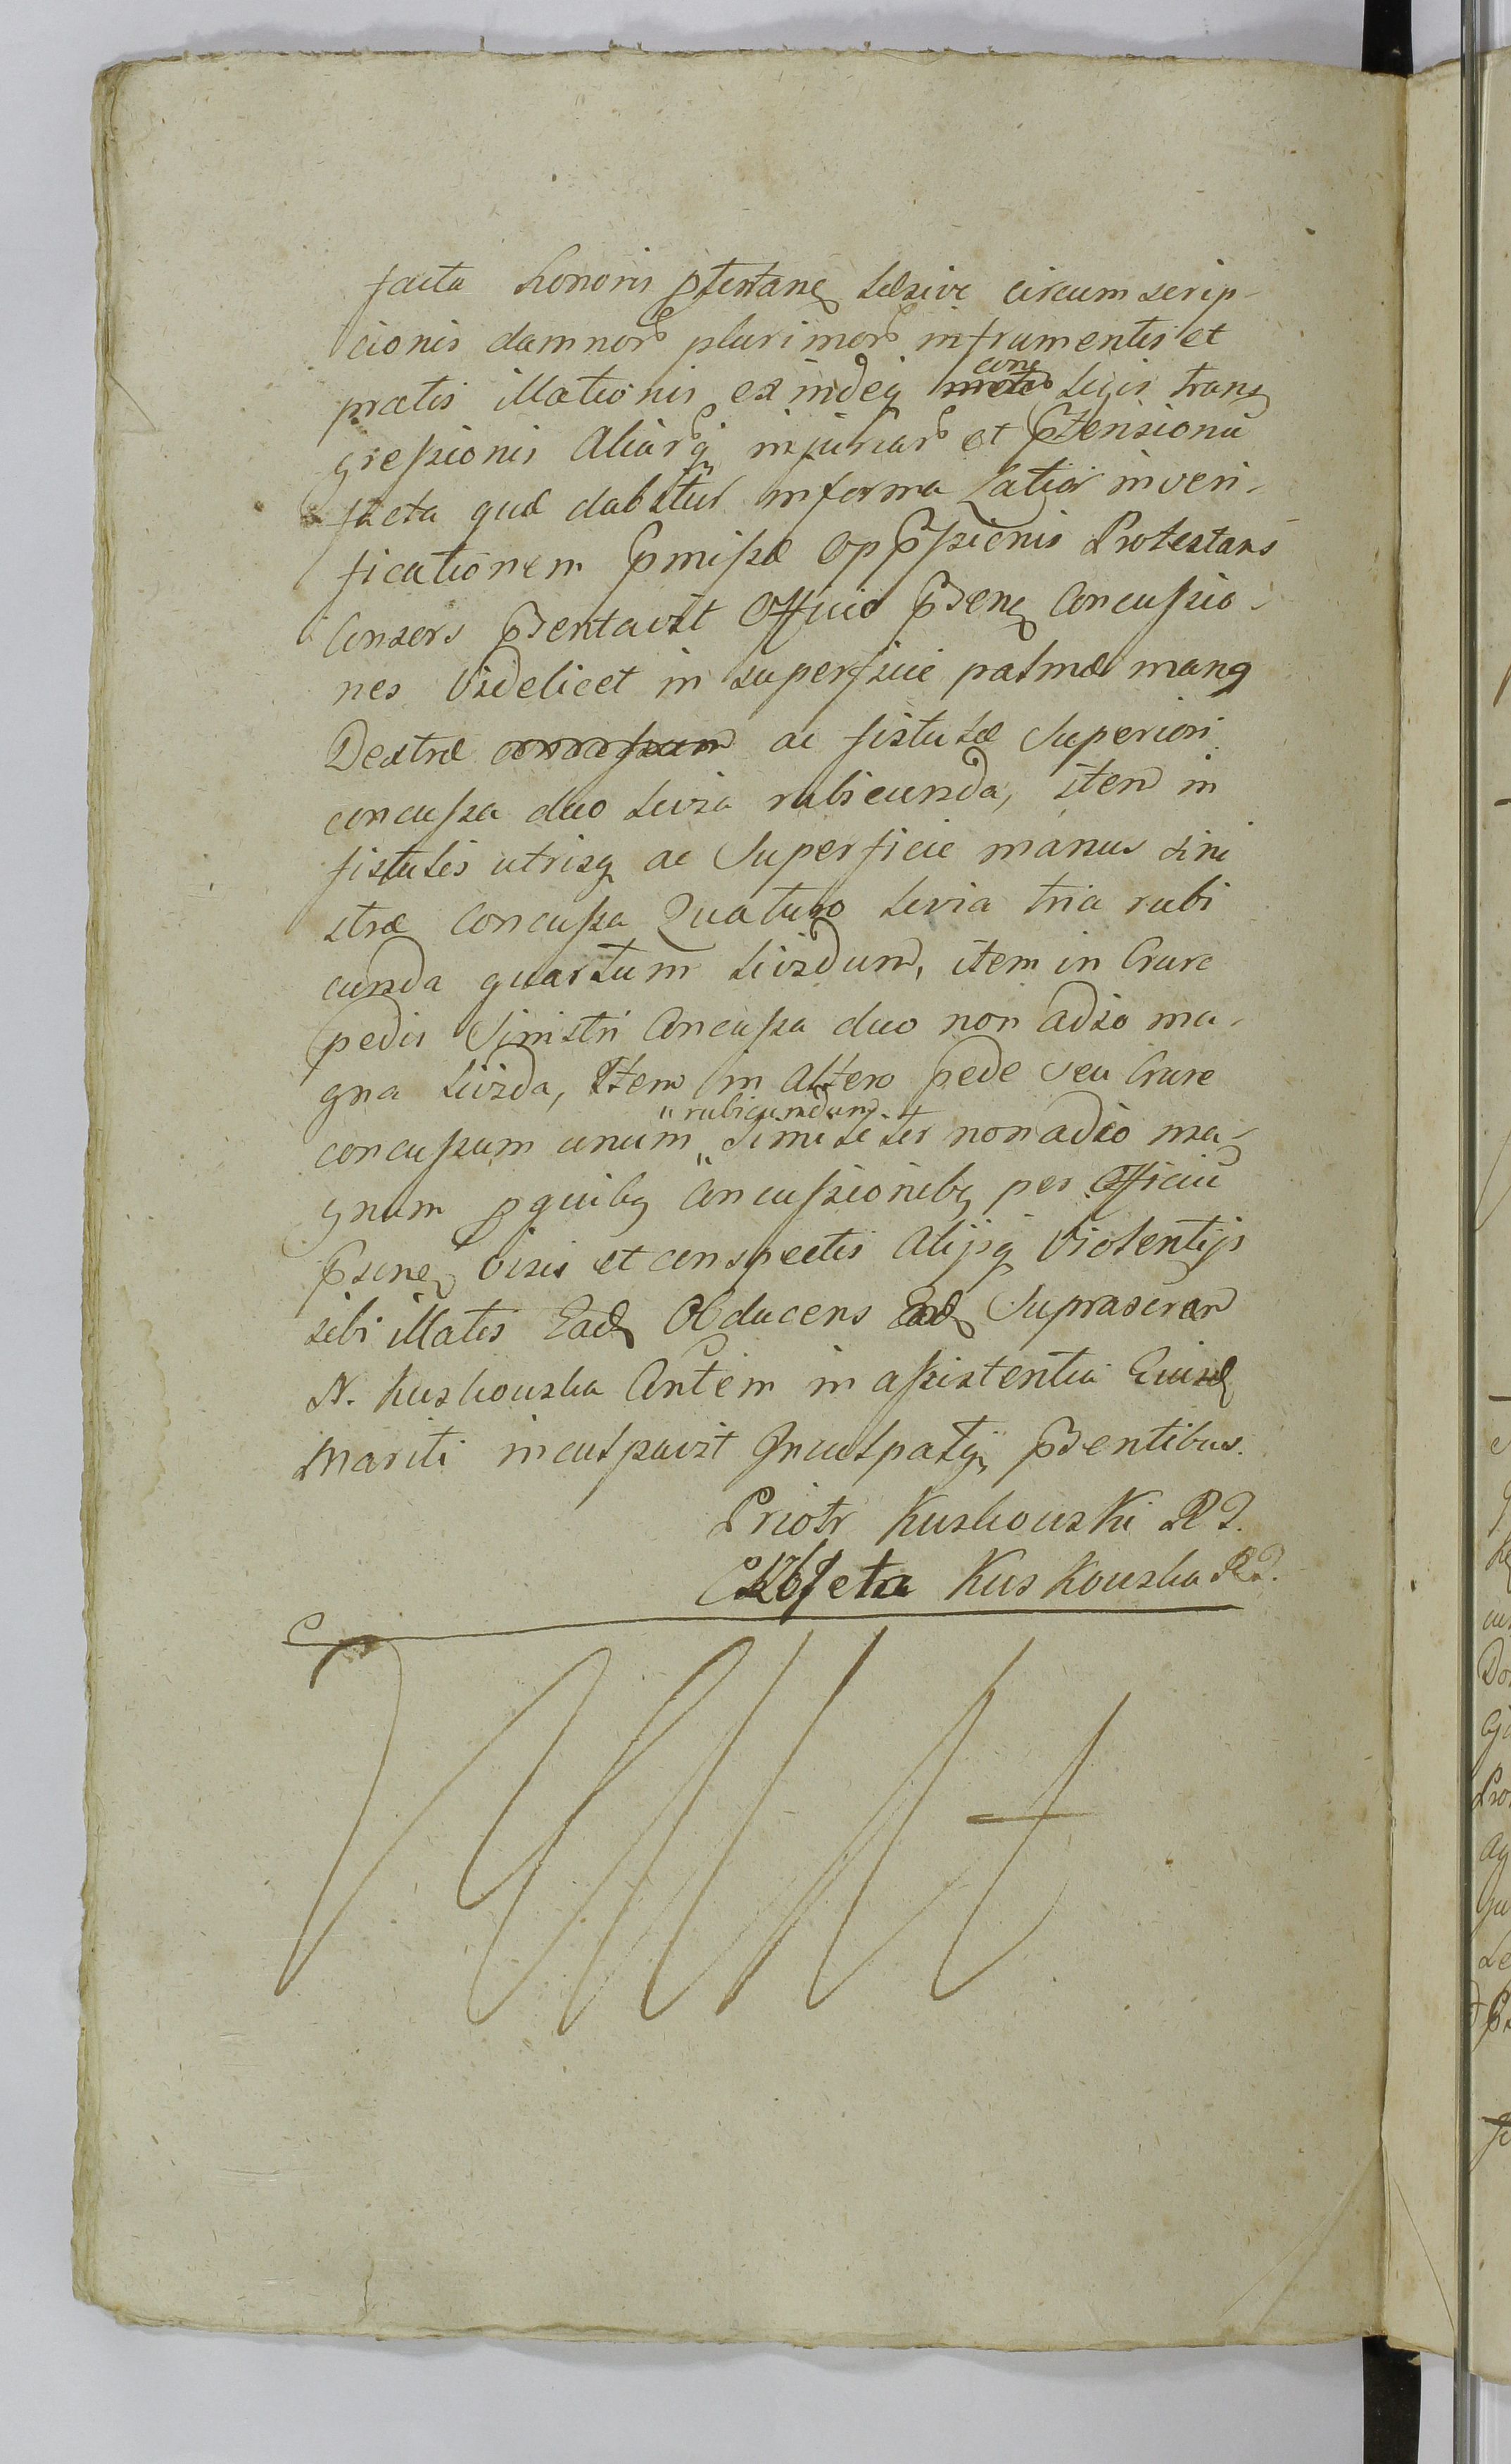 facta honoris ptestane læsive circumscrip-
cionis damnor plurimor in frumentis et
pratis illationis exindeq cone Legis trans
gressionis Aliarq injuriar et Ptensionu
facta quæ dabitur in forma Latior in veri-
ficationem Pmissæ Oppssionis Protestans
Consors Psentavit Officio Psenq Concussio-
nes Videlicet in superficie palmæ manq
Dextræ ac fistulæ Superiori
concussa duo Livia rubicunda, item in
fistulis utrisq ac Superficie manus sini
stræ Concussa Quatuor Livia tria rubi
cunda quartum Lividum, item in Crure
pedis Sinistri Concussa duo non adeo ma-
gna Livida, Item in Altero pede seu Crure
" rubicundum
concussum unum " Similiter non adeo ma-
gnum p quibq Concussionibq per Officiu
Psene visis et conspectis Alijsq Violentijs
sibi illatis Ead Obducens Supra
N. Kuskouska Autem in assistentia Eiusd
Mariti inculpavit Inculpatq Psentibus.
Priotr Kuskouski
Elzbjeta Kuskouska